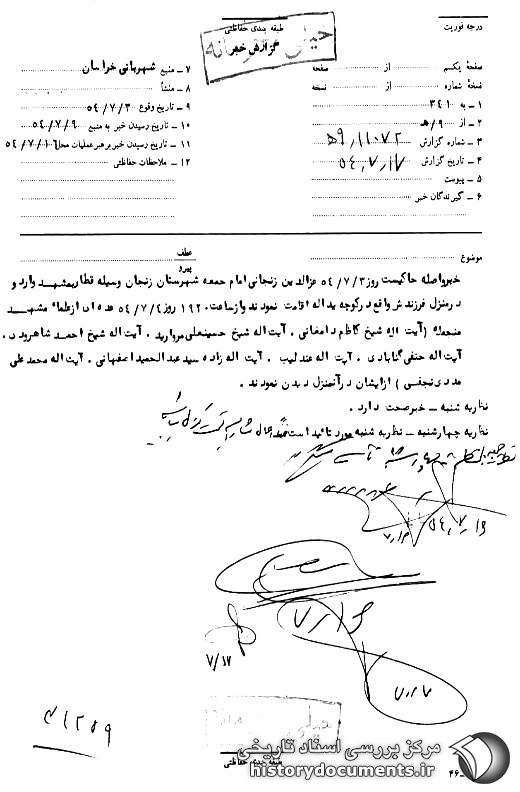 درجه فوریت
طبقه بندی حفاظتی
خیلی محرمانه
گزارش خبر
صفحهٔ یکم از صفحه
نسخهٔ شماره از نسخه
۱ ـ به ۳۴۱
۲ ـ از ۹/ﻫ
۳ ـ شماره گزارش ۹/۱۱۰۷۲ﻫ
۴ ـ تاریخ گزارش ۵۴/۷/۱۷
۵ ـ پیوست
۶ ـ گیرندگان خبر
۷ ـ منبع شهربانی خراسان
۸ ـ منشأ
۹ ـ تاریخ وقوع ۵۴/۷/۳
۱۰ ـ تاریخ رسیدن خبر به منبع ۵۴/۷/۹
۱۱ ـ تاریخ رسیدن خبر به رهبر عملیات محل ۵۴/۷/۱۶
۱۲ ـ ملاحظات حفاظتی
موضوع
عطف
پیرو
خبرواصله حاکیست روز ۵۴/۷/۳ عزالدین زنجانی امام جمعه شهرستان زنجان وسیله قطار بمشهد وارد و
در منزل فرزندش واقع در کوچه یداله اقامت نمودند و از ساعت ۱۹۲۰ روز ۵۴/۷/۴ عده ای از علماء مشهد
منجمله (آیت اله شیخ کاظم دامغانی ، آیت اله شیخ حسینعلی مروارید ، آیت اله شیخ احمد شاهرودی ،
آیت اله حنفی گنابادی ، آیت اله عندلیب ، آیت اله زاده سید عبدالحمید اصفهانی ، آیت اله محمد علی
مددی نجفی ) از ایشان در آنمنزل دیدن نمودند .
نظریه شنبه ـ خبر صحت دارد .
نظریه چهارشنبه ـ نظریه شنبه مورد تائید است
۵۴/۷/۱۶
۷/۱۶
۷/۱۷
۷/۱۷
۴۱۲۵۹
طبقه بندی حفاظتی
مرکز بررسی اسناد تاریخی
historydocuments.ir